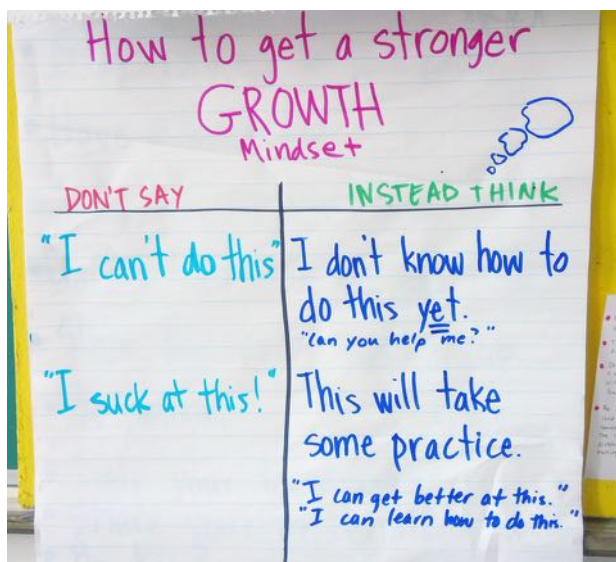 How to get a stronger
GROWTH
Mindset
DON'T SAY
INSTEAD THINK
"I can't do this"
I don't know how to
do this yet.
"Can you help me?"
"I suck at this!"
This will take
some practice.
"I can get better at this."
"I can learn how to do this."